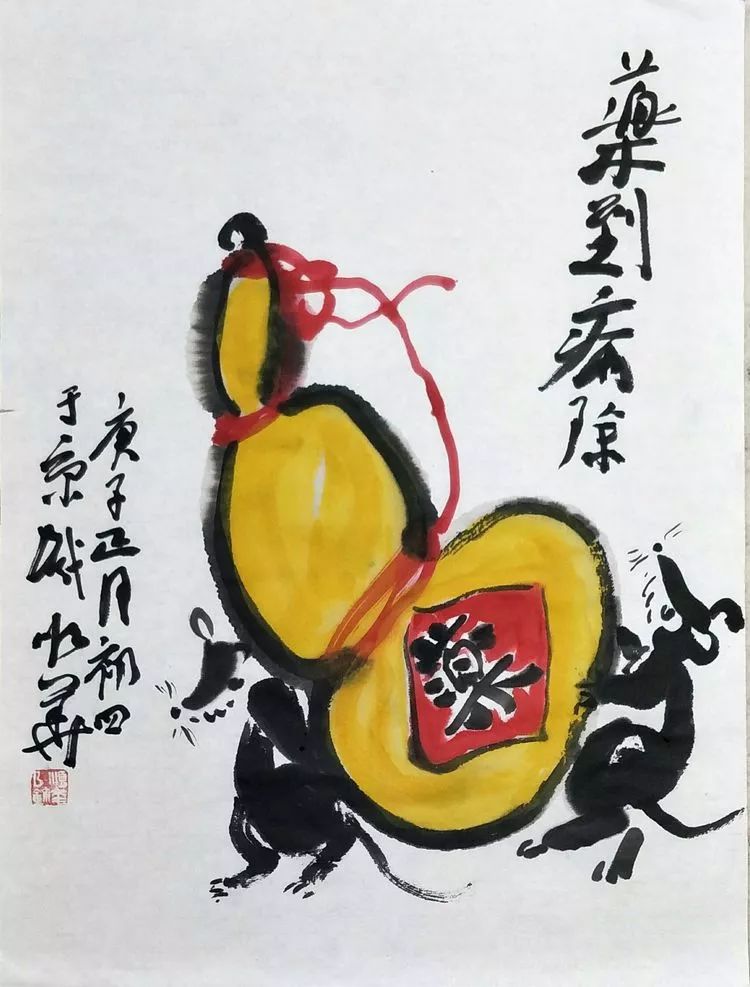 藥到病除
藥
庚子正月初四
于京
華